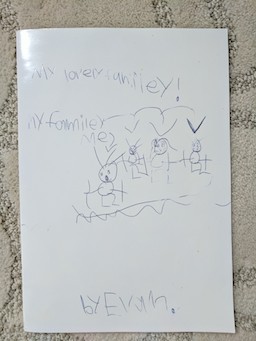 My lovely familey!
My fammiley
Me
by Evan.